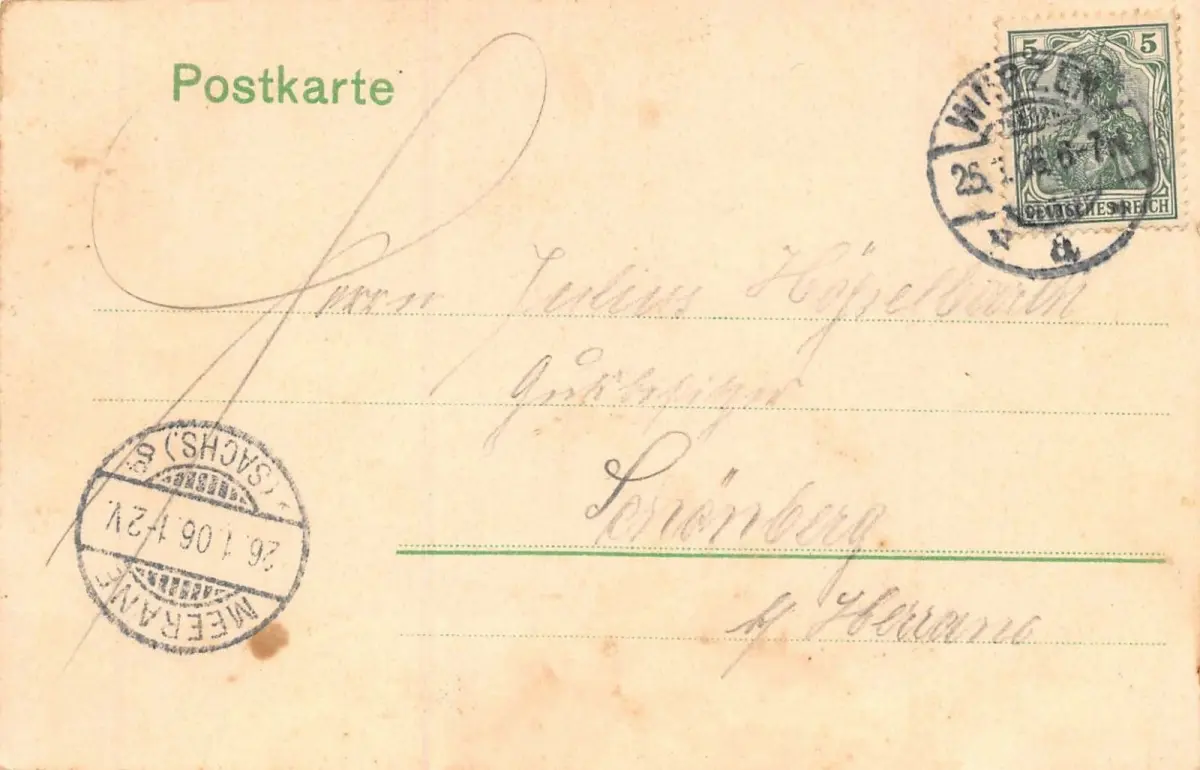 Postkarte
5 5
DEUTSCHES REICH
WURZEN
25. 1. 06. 6-7N.
a
Herrn Julius
Gutsbesitzer
Schönberg
b/ Meerane
MEERANE
26.1.06.1-2V.
(SACHS.)